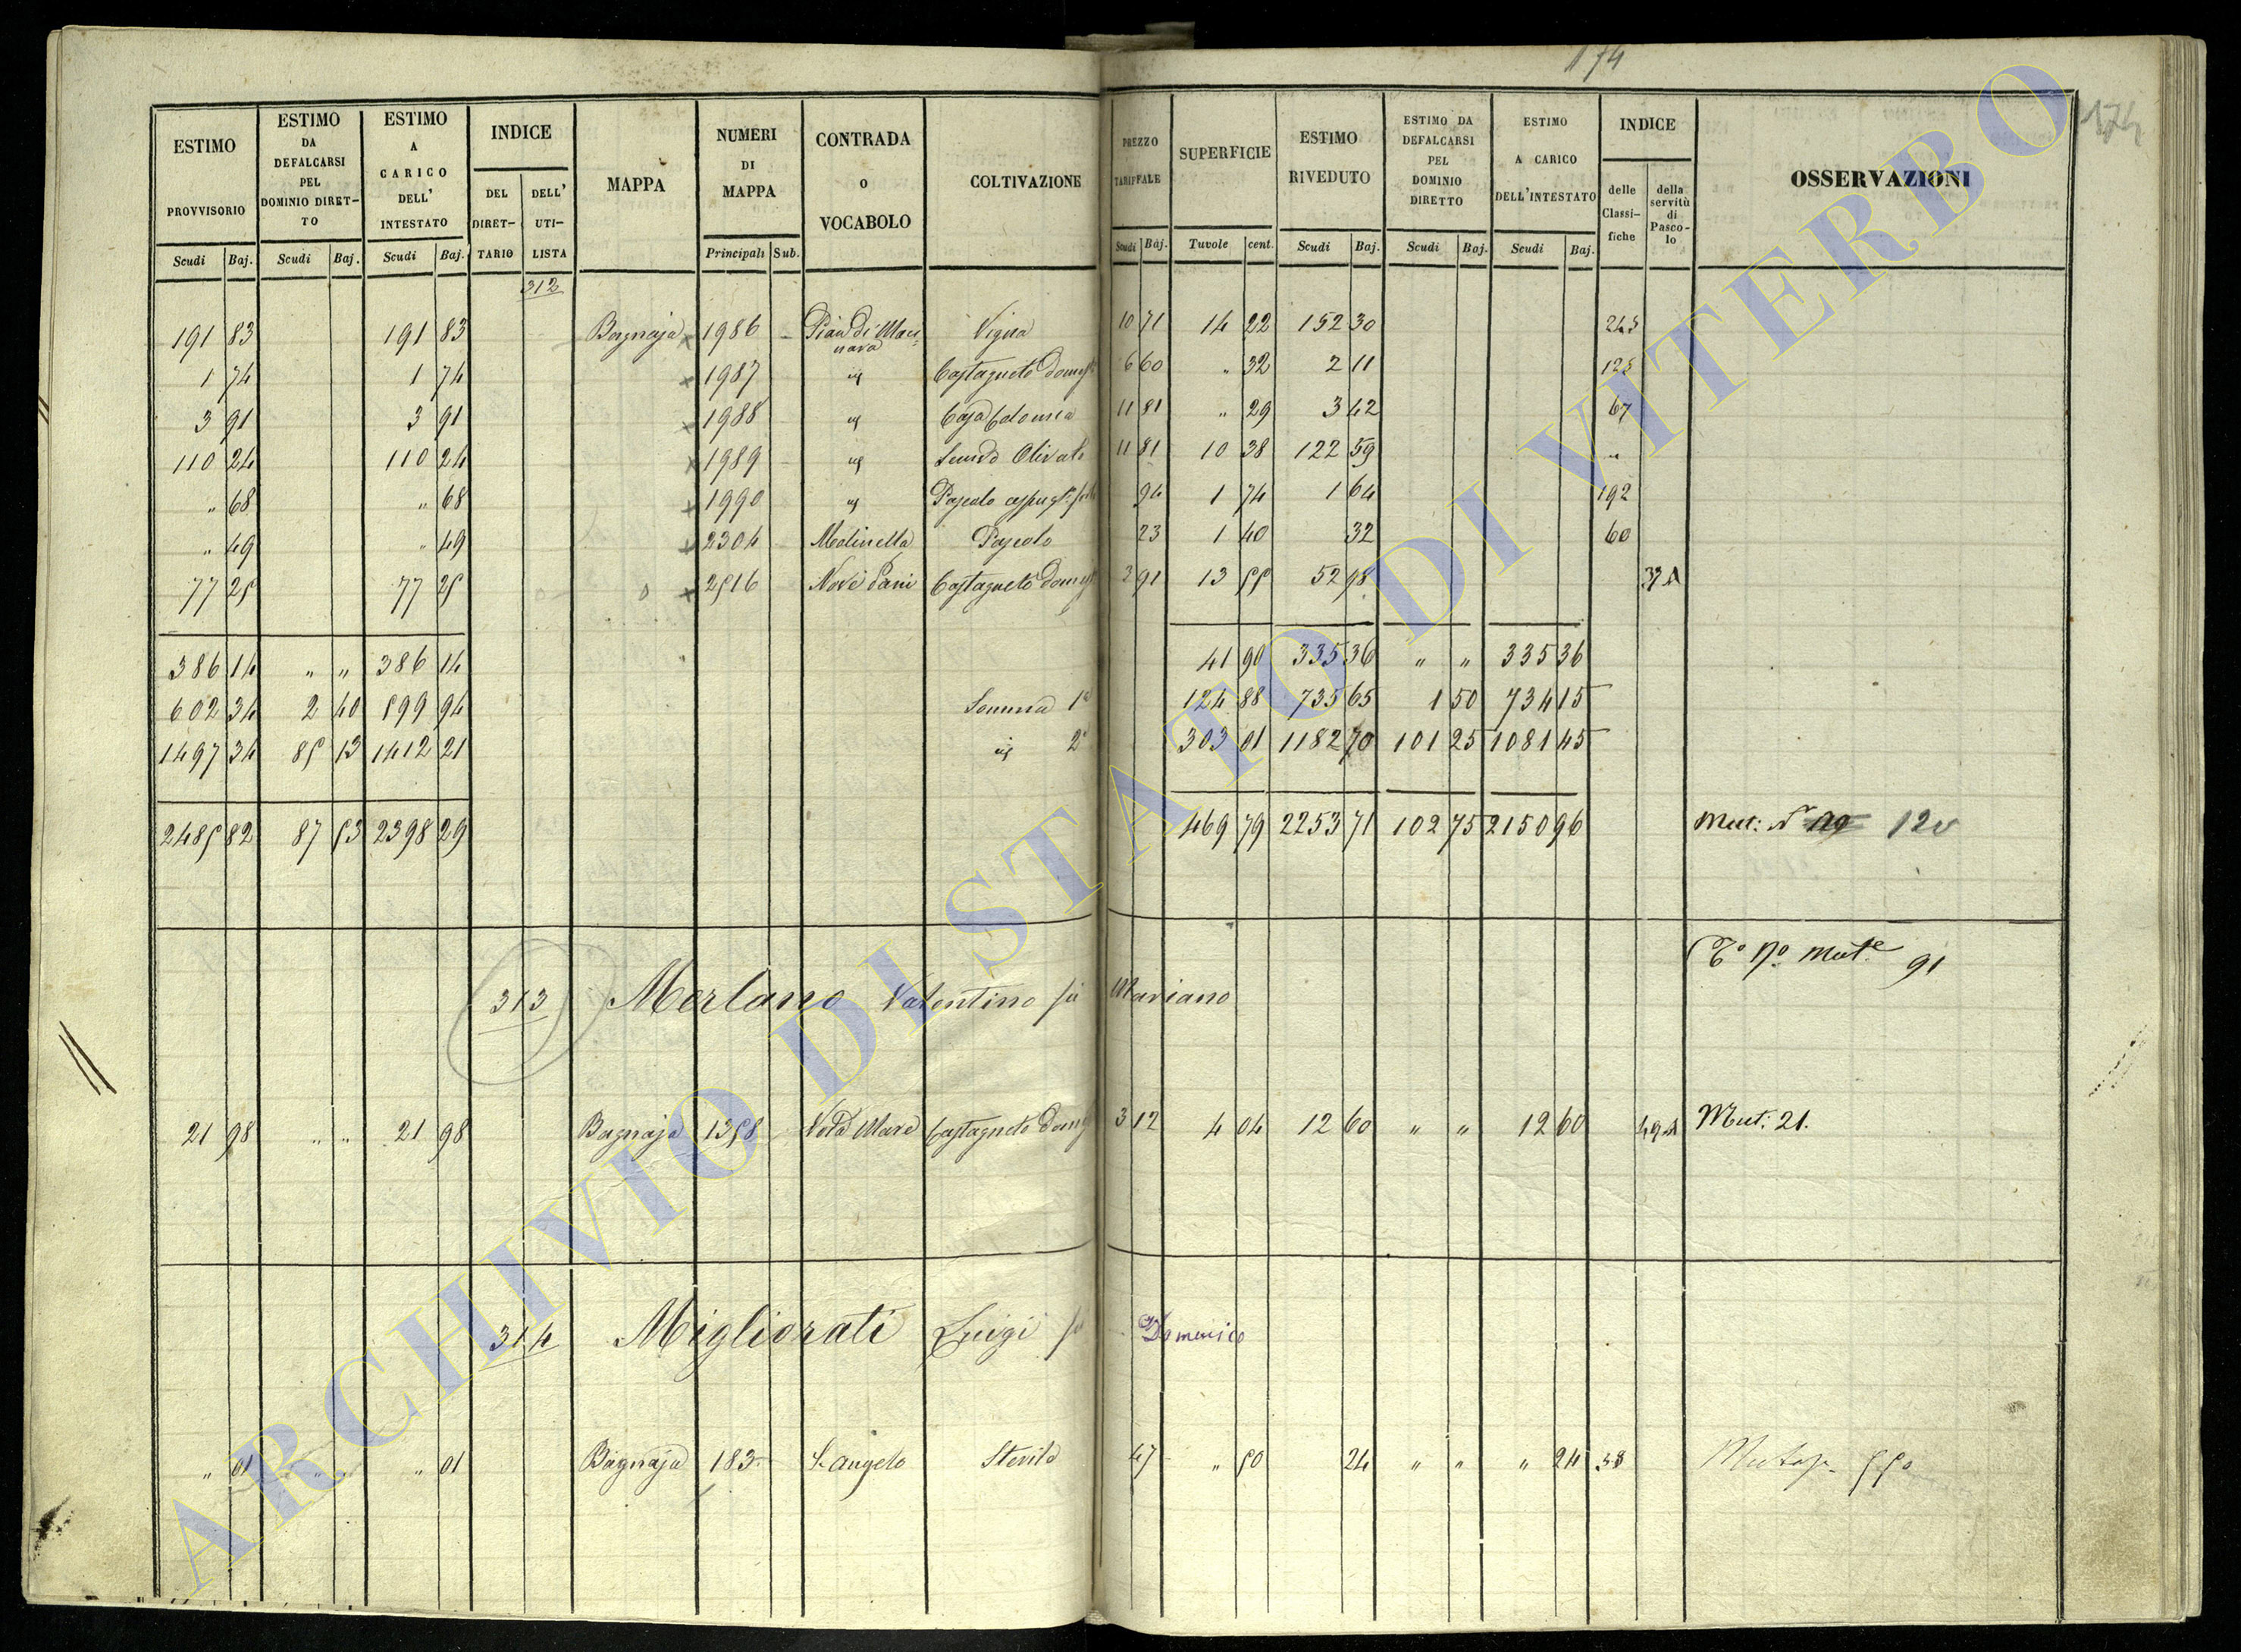 174
174
ESTIMO PROVVISORIO Scudi Baj.
ESTIMO DA DEFALCARSI PEL DOMINIO DIRETTO Scudi Baj.
ESTIMO A CARICO DELL' INTESTATO Scudi Baj.
INDICE DEL DIRETTARIO DELL' UTILISTA
MAPPA
NUMERI DI MAPPA Principali Sub.
CONTRADA O VOCABOLO
COLTIVAZIONE
PREZZO TARIFFALE Scudi Baj.
SUPERFICIE Tavole cent.
ESTIMO RIVEDUTO Scudi Baj.
ESTIMO DA DEFALCARSI PEL DOMINIO DIRETTO Scudi Baj.
ESTIMO A CARICO DELL'INTESTATO Scudi Baj.
INDICE delle Classifiche della servitù di Pascolo
OSSERVAZIONI
312
191 83 191 83 Bagnaja 1986 Vigna 10 71 14 22 152 30 245
1 74 1 74 1987 Castagneto Domest 6 60 " 32 2 11 125
3 91 3 91 1988 Casa Colonica 11 81 " 29 3 42 67
110 24 110 24 1989 Olivato 11 81 10 38 122 59 "
" 68 " 68 1990 Pascolo 94 1 74 1 64 192
" 49 " 49 2304 Molinella Pascolo 23 1 40 32 60
77 25 77 25 2516 Castagneto Domest 3 91 13 55 52 98 37 A
386 14 " " 386 14 41 90 335 36 " " 335 36
602 34 2 40 599 94 Somma 1ª 124 88 735 65 1 50 734 15
1497 34 85 13 1412 21 2ª 303 01 1182 70 101 25 1081 45
2485 82 87 53 2398 29 469 79 2253 71 102 75 2150 96 Mut: N 120
Tº Nº Mutº 91
313 Merlano Valentino fu Mariano
21 98 " " 21 98 Bagnaja 1358 Castagneto Domest 3 12 4 04 12 60 " " 12 60 49 A Mut: 21.
314 Migliorati Luigi fu Domenico
" 01 " " " 01 Bagnaja 183 S. Angelo Sterile 47 " 50 24 " " " 24 38 550
ARCHIVIO DI STATO DI VITERBO